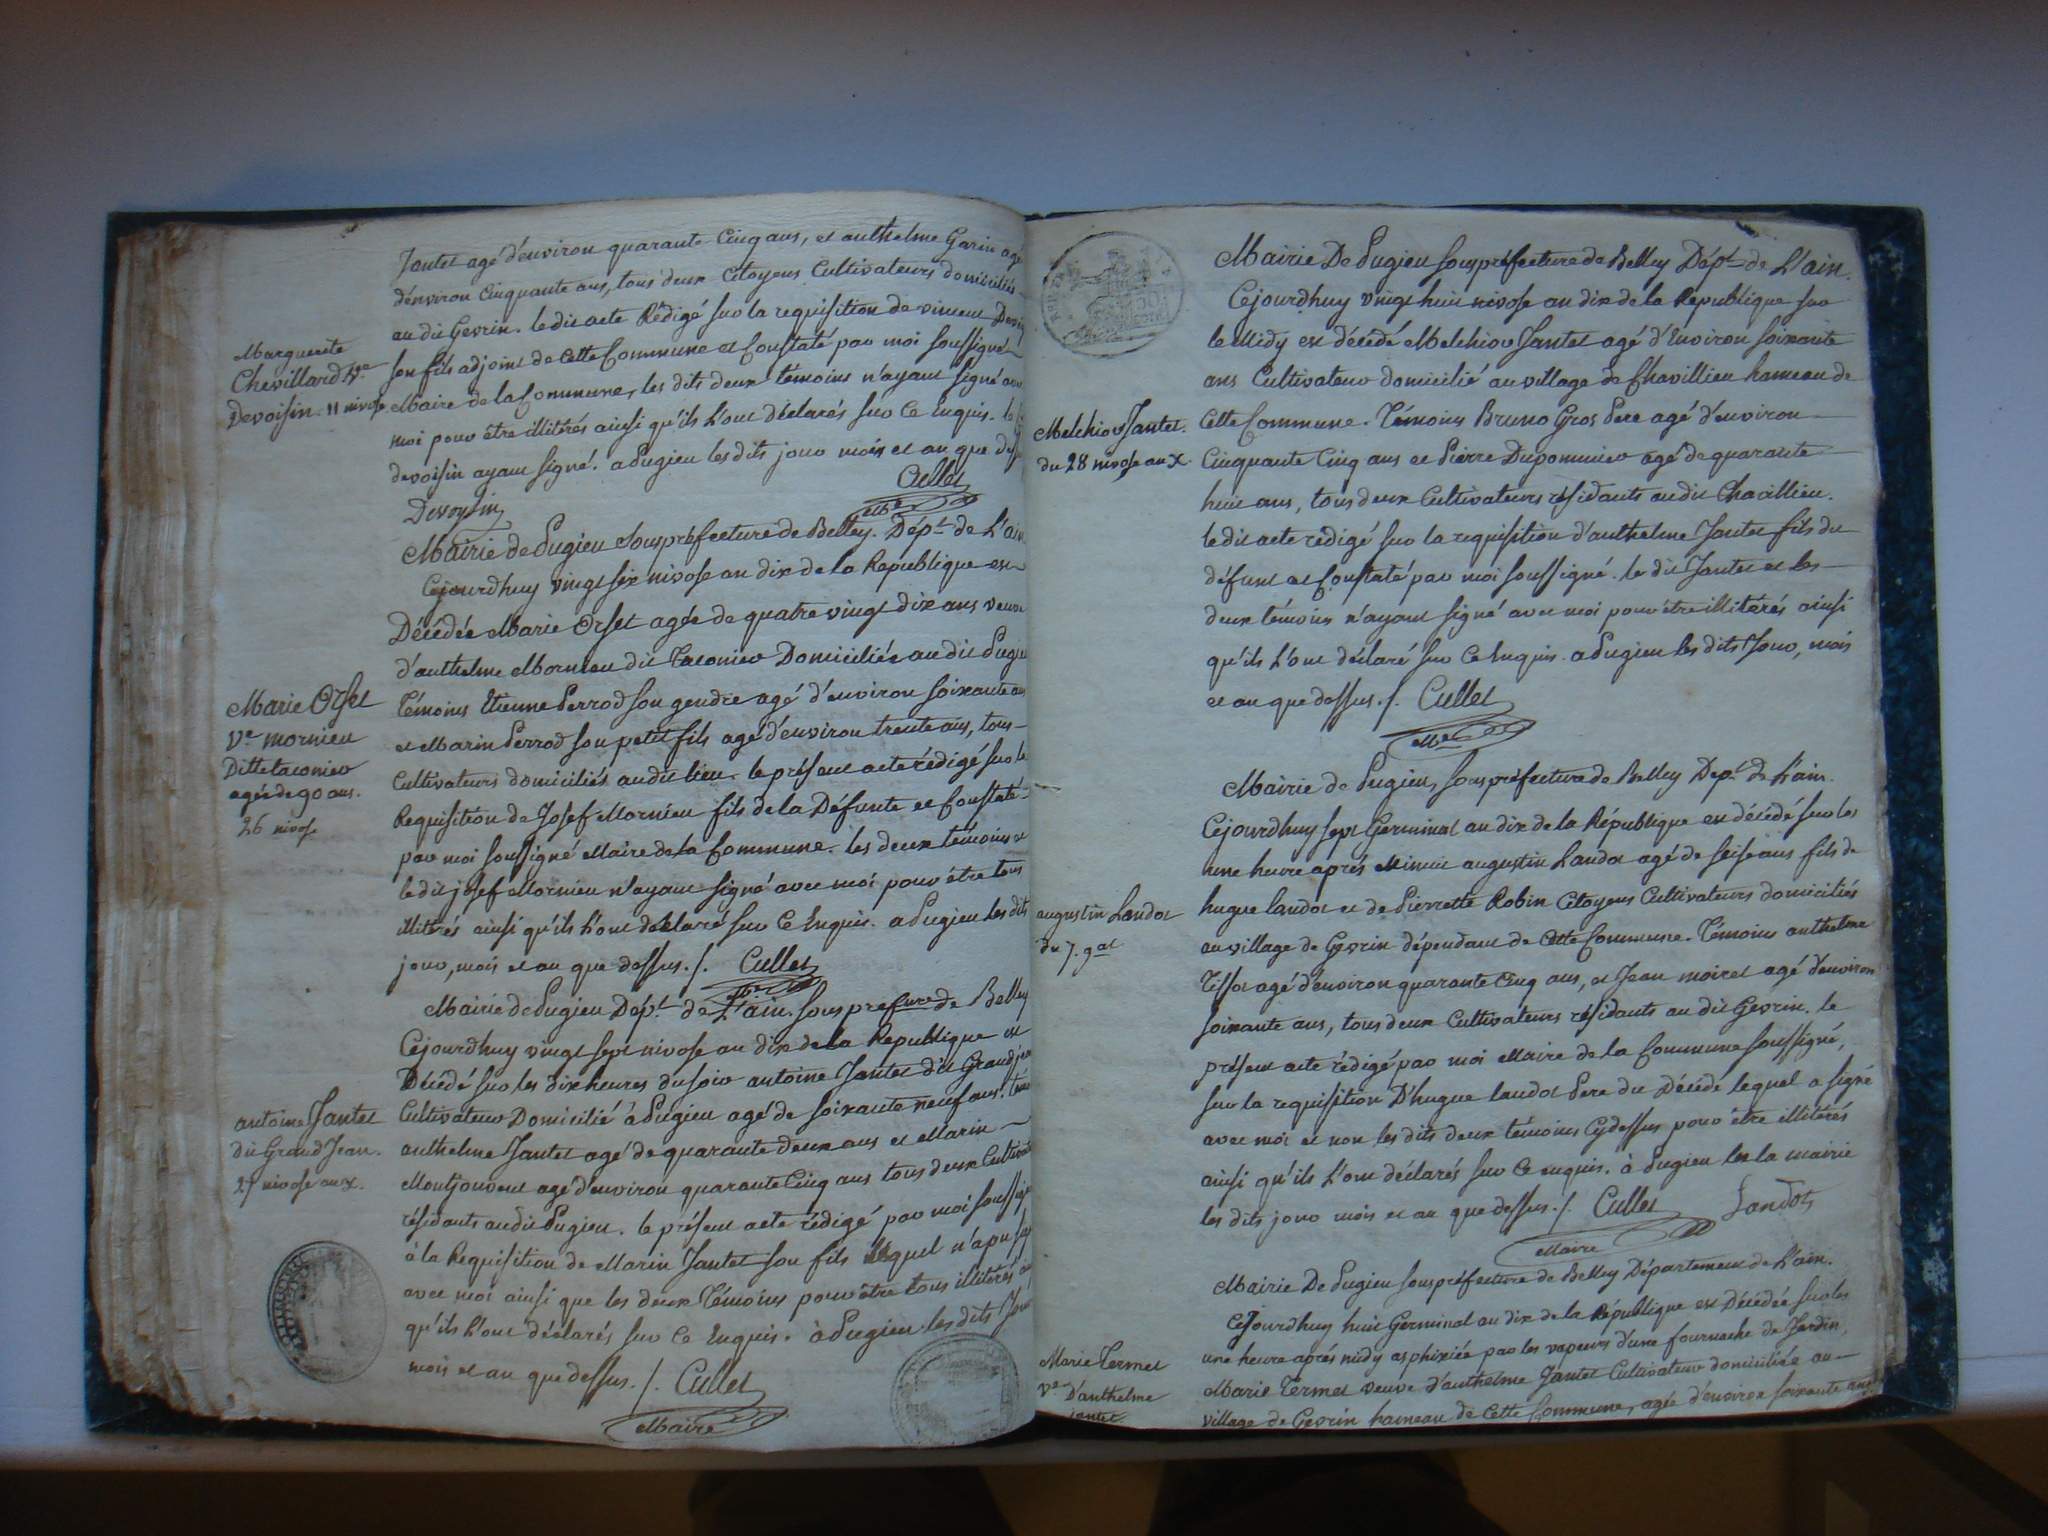 Jantet agé d'environ quarante Cinq ans, et anthelme Garin agé
d'environ Cinquante ans, tous deux Citoyens Cultivateurs domiciliés
au dit Gevrin. le dit acte Rédigé sur la requisition de vincent
Marguerite
Chevillard Ve
Devoisin. 11 nivose
son fils adjoint de Cette Commune et Constaté par moi soussigné
Maire de la Commune, les dits deux témoins n'ayant signé avec
moi pour être illitérés ainsi qu'ils l'ont déclarés sur ce Enquis. le
devoisin ayant signé. a Pugieu les dits jour mois et an que
Cullet
Devoysin
Me
Mairie de Pugieu Souspréfecture de Belley. Dépt de L'ain
Cejourdhuy vingt six nivose an dix de la Republique est
Décédée Marie Orset agée de quatre vingt dix ans veuve
d'anthelme Mornieu dit Taconier Domiciliée au dit Pugieu
Marie Orset
Ve mornieu
Ditte taconier
agée de 90 ans.
26 nivose
Témoins Etienne Perrod son gendre agé d'environ soixante ans
et Marin Perrod son petit fils agé d'environ trente ans, tous
Cultivateurs domiciliés au dit lieu. le présent acte rédigé sur la
Requisition de Josef Mornieu fils de la Défunte et Constaté
par moi soussigné Maire de la Commune. les deux témoins et
le dit josef Mornieu n'ayant signé avec moi pour être tous
illitérés ainsi qu'ils l'ont déclaré sur ce Enquis. a Pugieu les dits
jour, mois et an que dessus. /. Cullet
Me
Mairie de Pugieu Dépt de L'ain. sousprefture de Belley
Cejourdhuy vingt sept nivose an dix de la Republique est
Décédé sur les dix heures du soir antoine Jantet dit Grandjean
antoine Jantet
dit Grand Jean.
27 nivose an x.
Cultivateur Domicilié à Pugieu agé de soixante neuf ans.
anthelme Jantet agé de quarante deux ans et Marin
Montjouvent agé d'environ quarante Cinq ans tous deux Cultivateurs
résidants au dit Pugieu. le présent acte rédigé par moi soussigné
à la Requisition de Marin Jantet son fils lequel n'a pu
avec moi ainsi que les deux Témoins pour être tous illitérés
qu'ils l'ont déclarés sur ce Enquis. à Pugieu les dits Jour
mois et an que dessus. /. Cullet
Maire
Mairie De Pugieu souspréfecture de Belley Dépt de L'ain.
Cejourdhuy vingt huit nivose an dix de la Republique sur
le Midy est décédé Melchior Jantet agé d'Environ soixante
ans Cultivateur domicilié au village de Chavillieu hameau de
Melchior Jantet.
du 28 nivose an X.
Cette Commune. Témoins Bruno Gros Pere agé d'environ
Cinquante Cinq ans et Pierre Dupommier agé de quarante
huit ans, tous deux Cultivateurs résidants au dit Chavillieu.
le dit acte rédigé sur la requisition d'anthelme Jantet fils du
défunt et Constaté par moi soussigné. le dit Jantet et les
deux témoins n'ayant signé avec moi pour être illitérés ainsi
qu'ils l'ont déclaré sur ce Enquis. a Pugieu les dits Jour, mois
et an que dessus. /. Cullet
Me
Mairie de Pugieu, souspréfecture de Belley Dept de L'ain.
Cejourdhuy sept Germinal an dix de la République est décédé sur les
une heure aprés Minuit augustin Landot agé de seise ans fils de
augustin Landot
du 7. gal
hugue landot et de Pierrette Robin Citoyens Cultivateurs domiciliés
au village de Gevrin dépendant de Cette Commune. Témoins anthelme
Tissot agé d'environ quarante Cinq ans, et Jean moiret agé d'environ
soixante ans, tous deux Cultivateurs résidants au dit Gevrin. le
présent acte rédigé par moi Maire de la Commune soussigné,
sur la requisition D'hugue landot Pere du Décédé lequel a signé
avec moi et non les dits deux témoins Cydessus pour être illitérés
ainsi qu'ils l'ont déclarés sur ce enquis. à Pugieu les la mairie
les dits jour mois et an que dessus. /. Cullet Landot
Maire
Mairie De Pugieu souspréfecture de Belley Département de L'ain.
Cejourdhuy huit Germinal an dix de la République est Décédée sur les
une heure aprés midy asphixiée par les vapeurs d'une fournache de Jardin,
Marie Termet
Ve D'anthelme
jantet
Marie Termet veuve d'anthelme Jantet Cultivateur domiciliée au
village de Gevrin hameau de Cette Commune, agée d'environ soixante ans